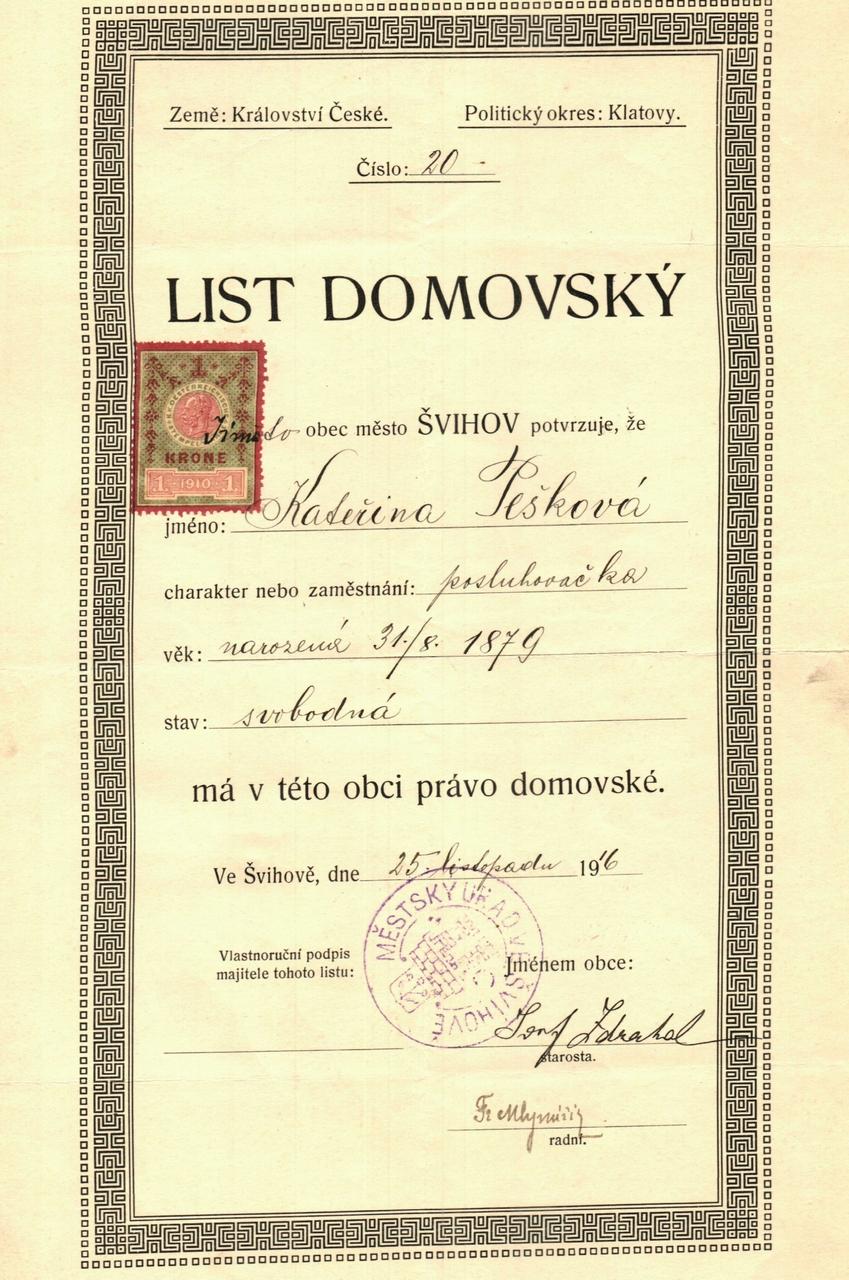 Země: Království České. Politický okres: Klatovy.
Číslo: 20 -
LIST DOMOVSKÝ
1
K.K. OESTERREICHISCHER STEMPEL
KRONE
1 1910 1
Jímžto obec město ŠVIHOV potvrzuje, že
jméno: Kateřina Pešková
charakter nebo zaměstnání: posluhovačka
věk: narozená 31./8. 1879
stav: svobodná
má v této obci právo domovské.
Ve Švihově, dne 25. listopadu 1916
MĚSTSKÝ ÚŘAD VE ŠVIHOVĚ
Vlastnoruční podpis
majitele tohoto listu:
Jménem obce:
Josef Zdrahal
starosta.
Fr
radní.